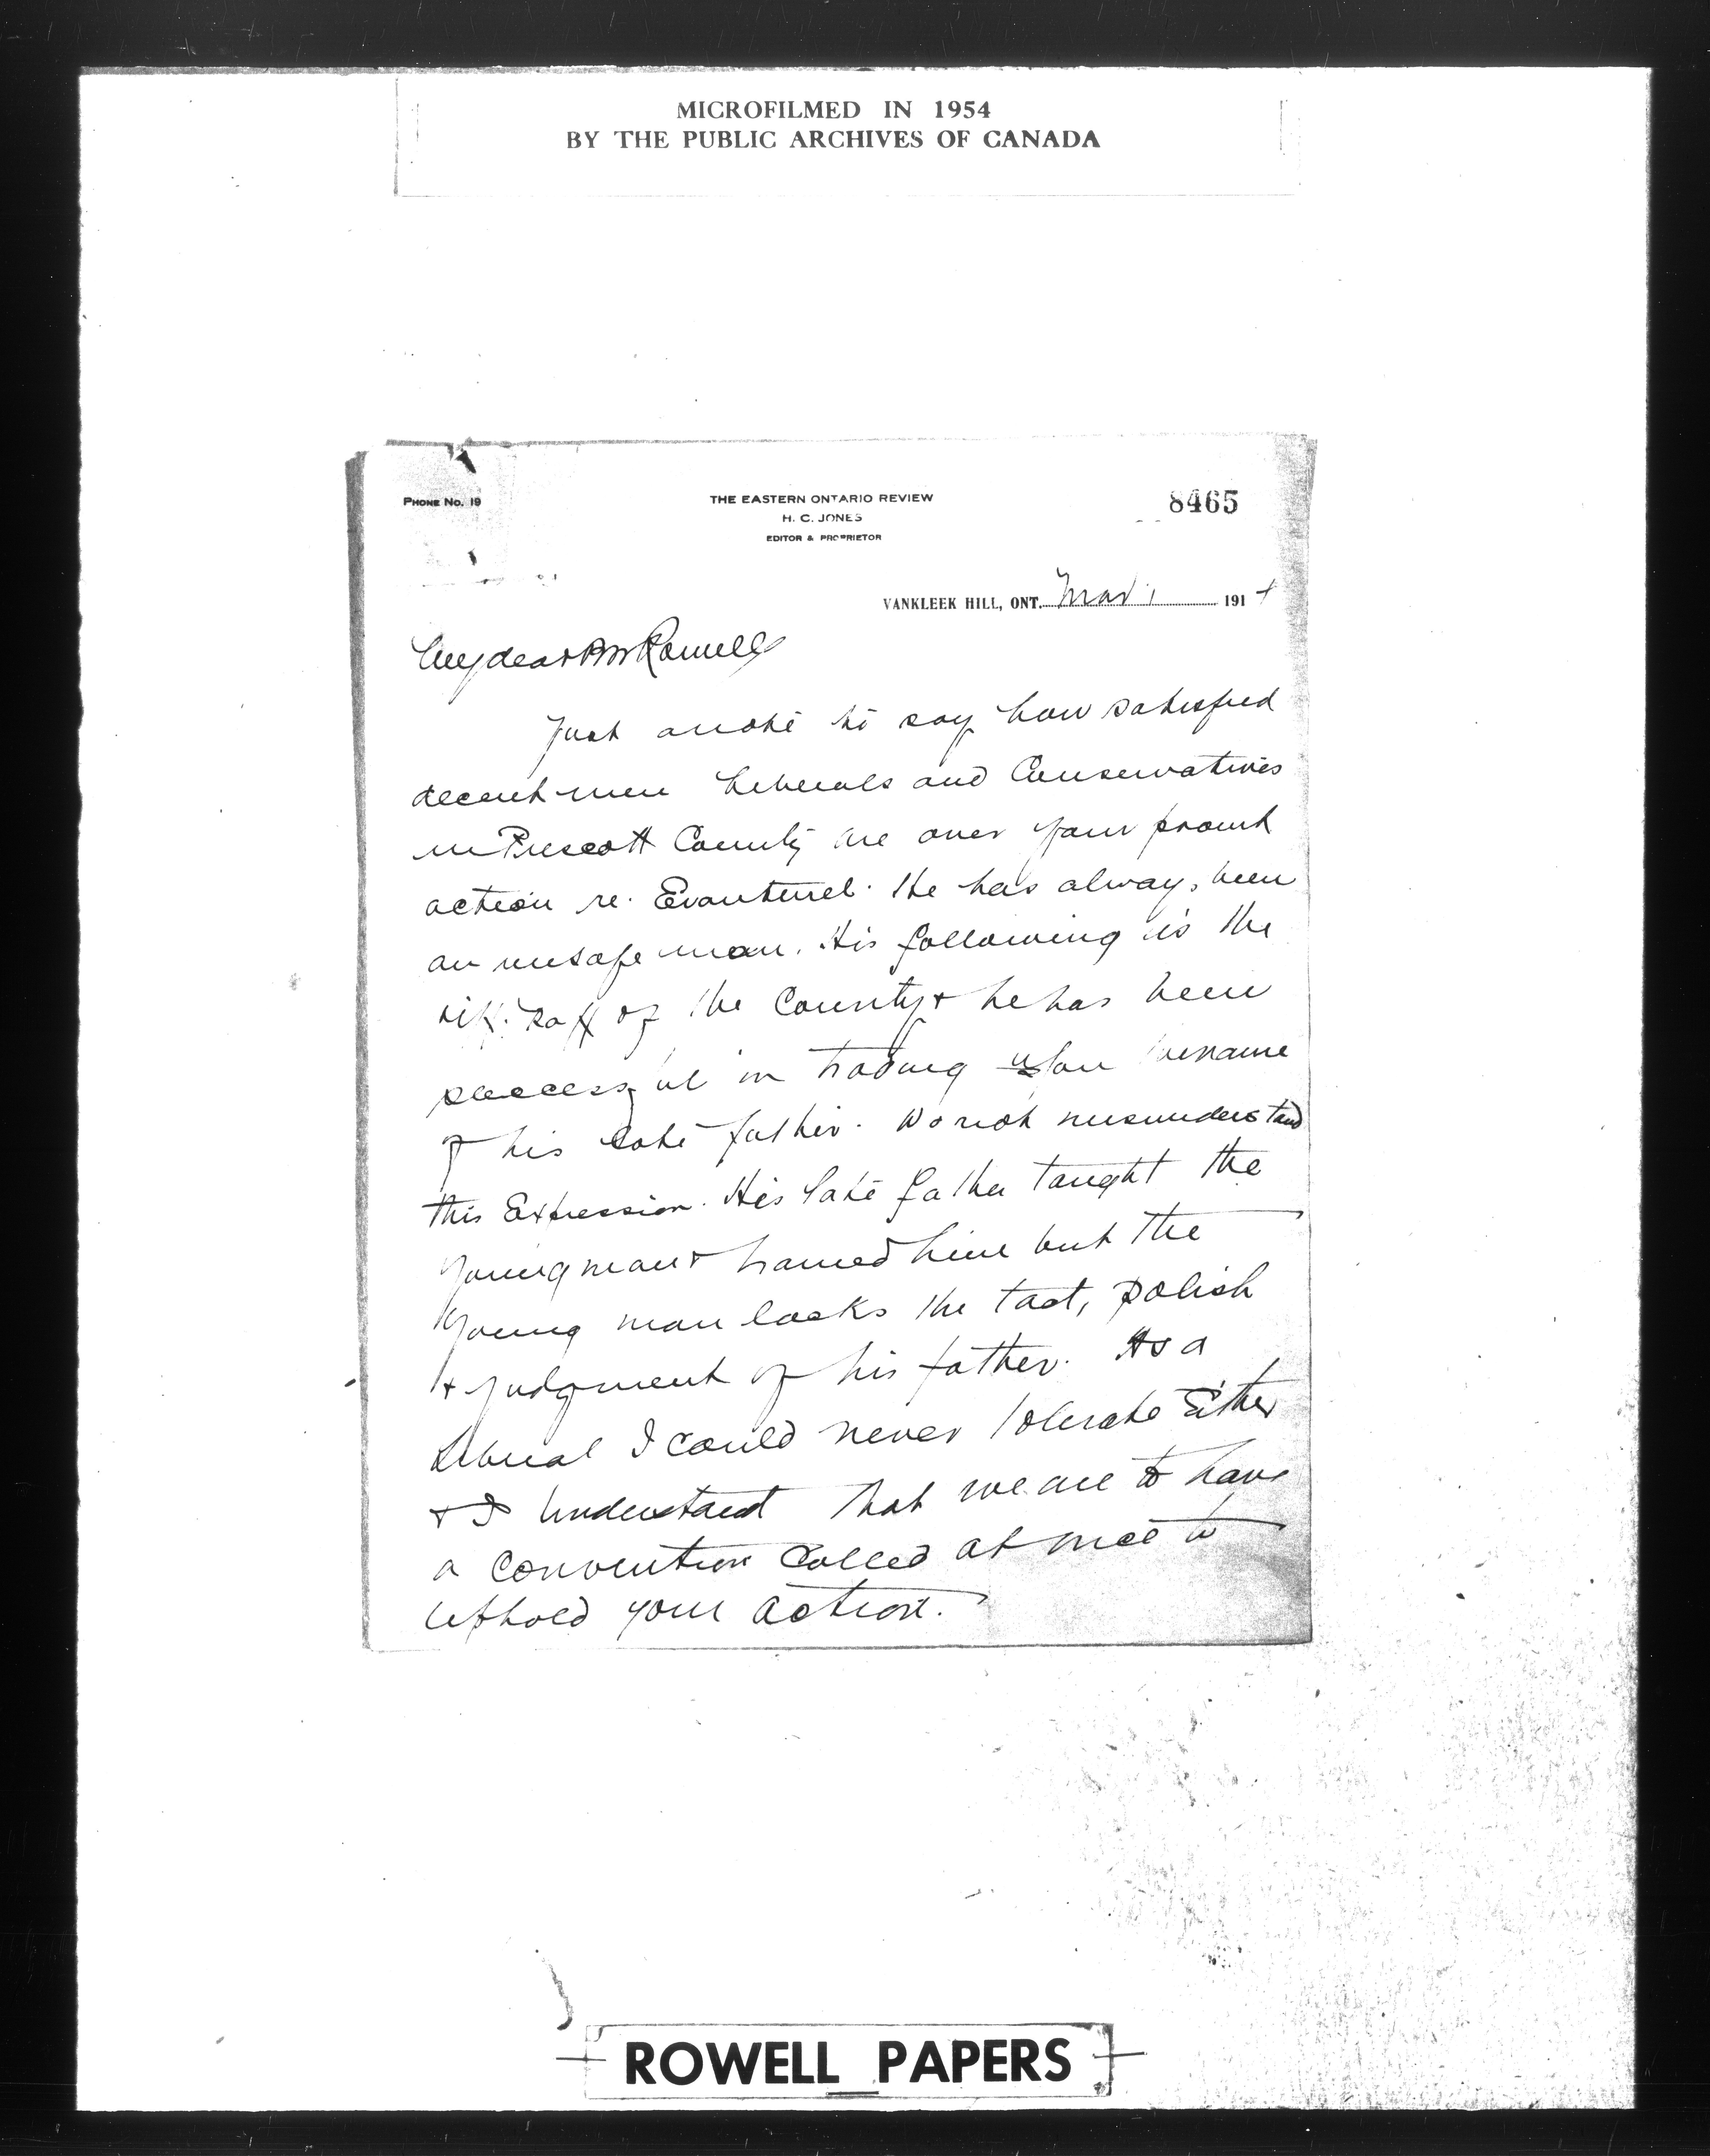 MICROFILMED IN 1954
BY THE PUBLIC ARCHIVES OF CANADA
PHONE No. 19
THE EASTERN ONTARIO REVIEW
H. C. JONES
EDITOR & PROPRIETOR
8465
VANKLEEK HILL, ONT. Mar 1 1914
My dear Mr Rowell
Just a note to say how satisfied
decent men Liberals and Conservatives
in Prescott County are over your prompt
action re. Evanturel. He has always been
an unsafe man. His following is the
riff. Raff of the County & he has been
successful in trading upon the name
of his late father. Do not misunderstand
this Expression. His late father taught the
young man & trained him but the
young man lacks the tact, polish
& judgment of his father. As a
Liberal I could never tolerate Either
& I understand that we are to have
a Convention Called at once to
uphold your action.
ROWELL PAPERS